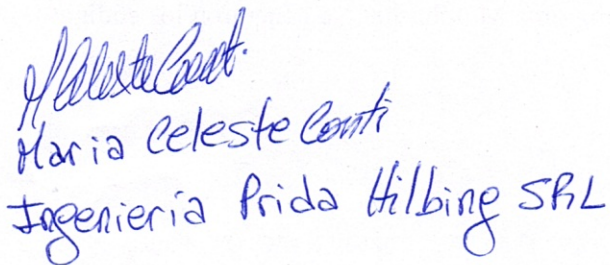 M Celeste Conti.
Maria Celeste Conti
Ingenieria Prida Hilbing SRL